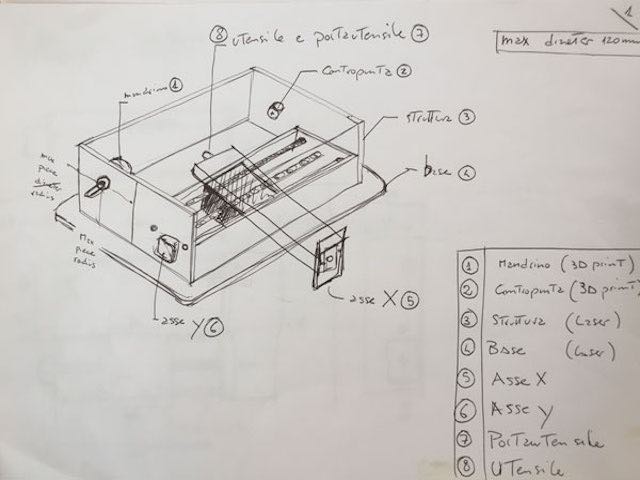 1
max diameter 120mm
8 utensile e portautensile 7
Contropunta 2
mandrino 1
struttura 3
base 4
max
piece
diameter
radius
Max
piece
radius
asse X 5
asse Y 6
1 Mandrino (3D print)
2 Contropunta (3D print)
3 Struttura (Laser)
4 Base (Laser)
5 Asse X
6 Asse Y
7 Portautensile
8 Utensile